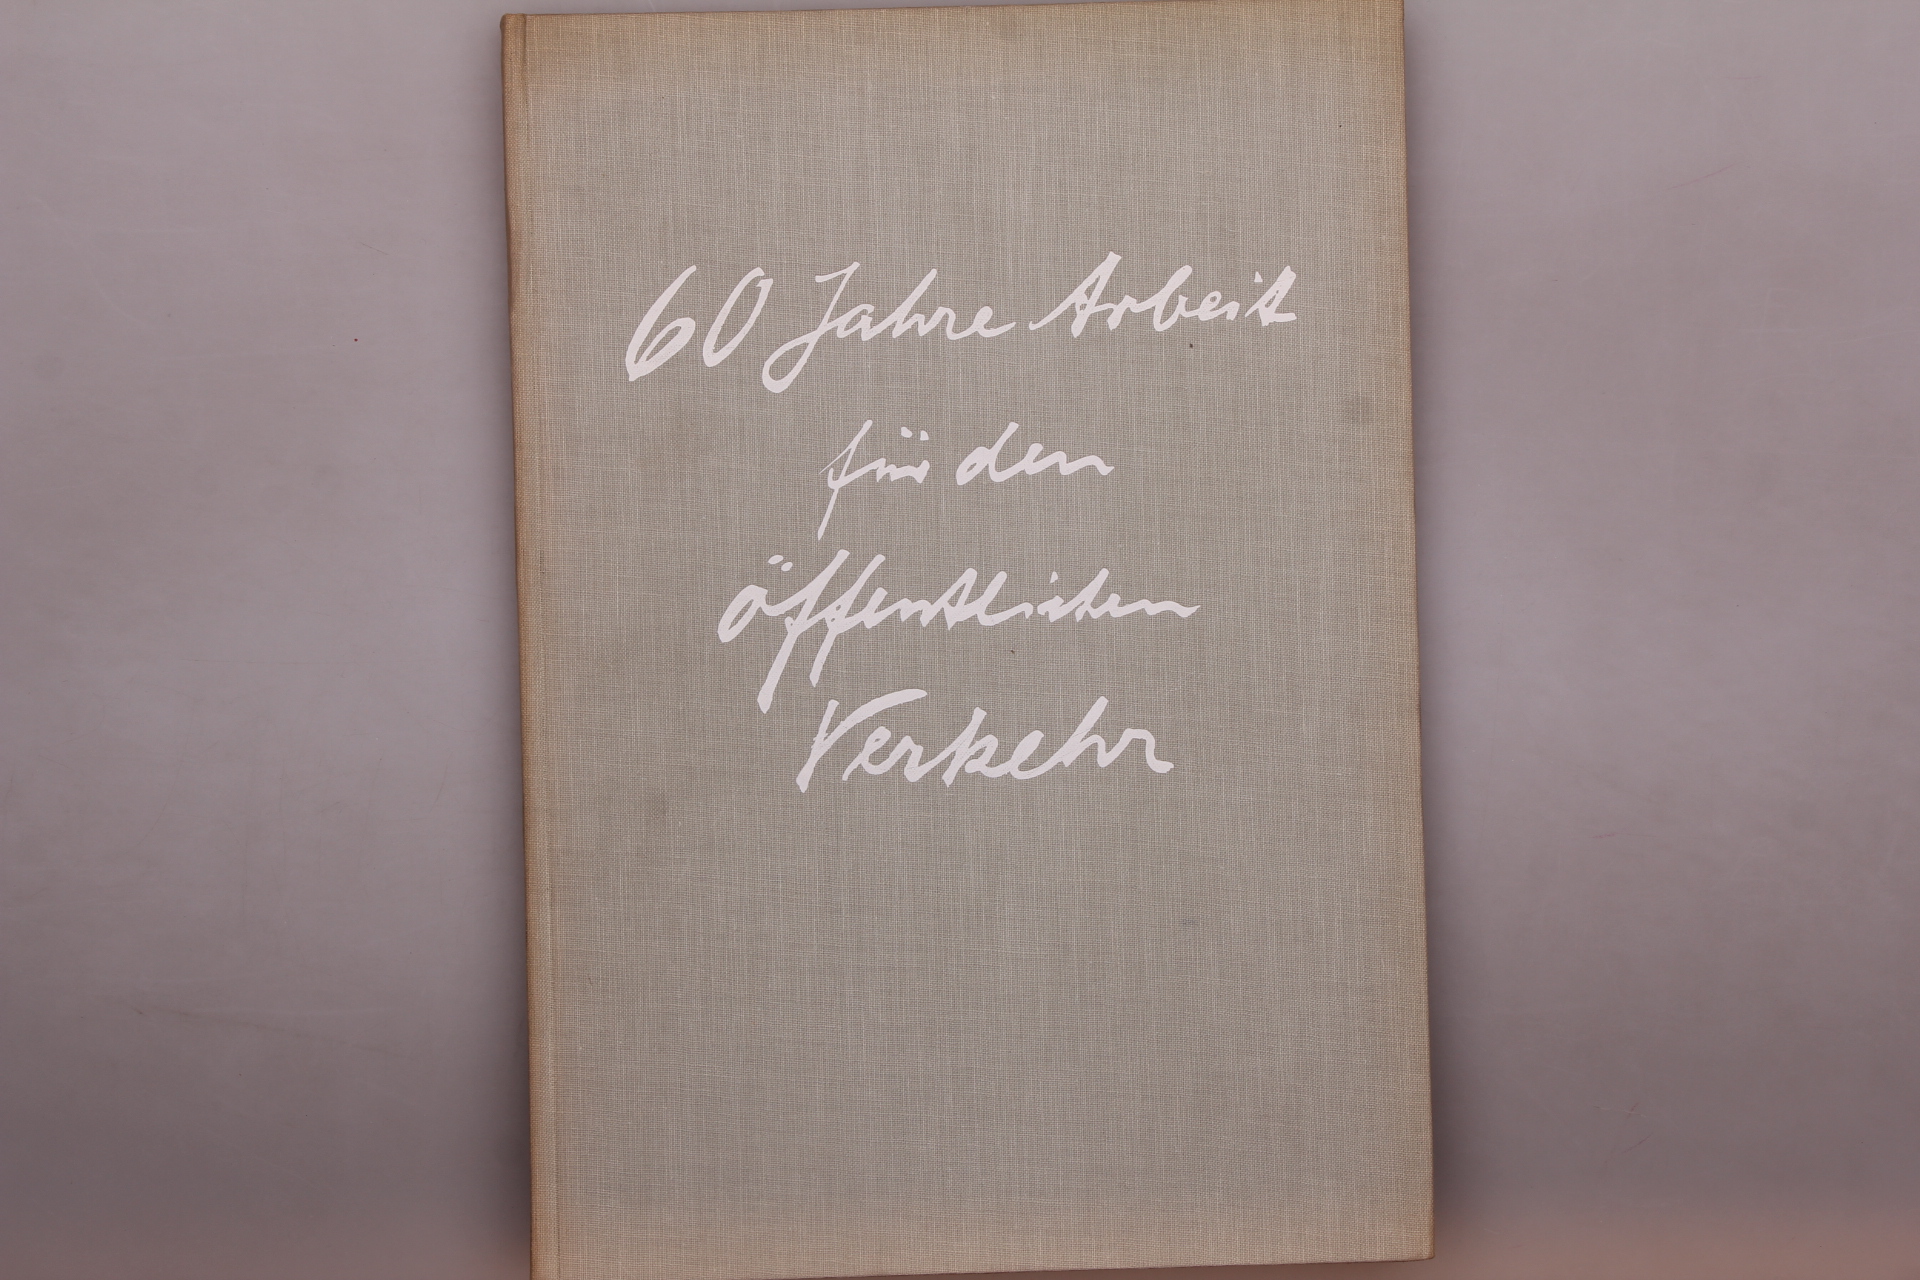 60 Jahre Arbeit
für den
öffentlichen
Verkehr